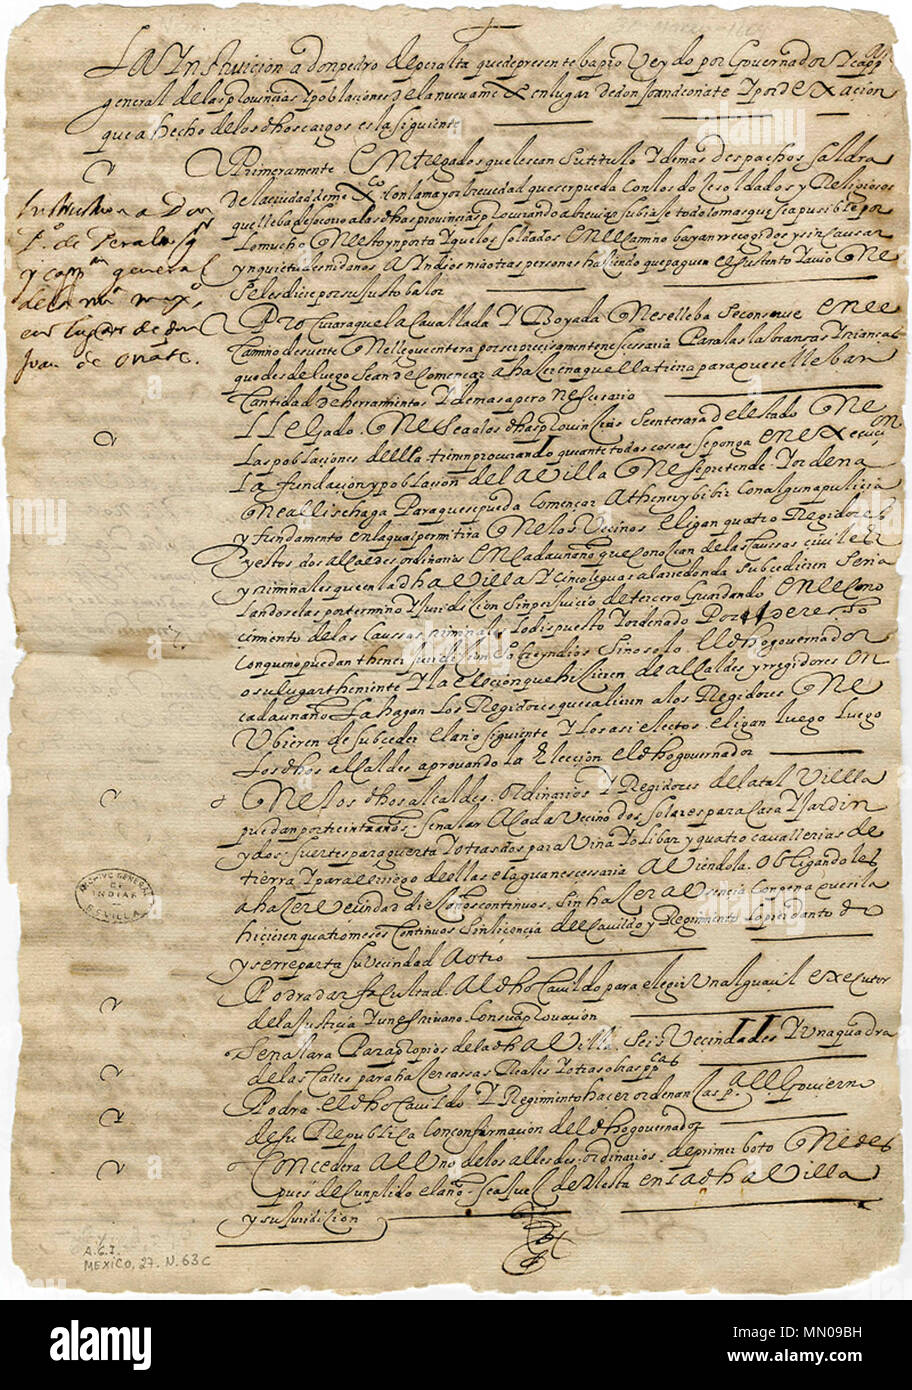 La ynstruicion a don pedro de peralta que de presente ba probeydo por Governador y capp
general de las provincias y poblaciones de la nueva mexco en lugar de don Joan de oñate y por dexacion
que a hecho de los dhos cargos es la siguiente
Primeramente entregados que le sean su titullo y demas despachos saldra
de la ciudad de mexco con la mayor brevedad que ser pueda con los doze soldados y Religiosos
que lleba de socorro a las dhas provincias procurando abreviar su biaje todo lo mas que sea pusible por
lo mucho que esto ynporta y que los soldados en el camino bayan recogidos y sin causar
ynquietudes ni danos a yndios ni a otras personas haciendo que paguen el sustento y avio que
se les diere por su justo balor
Procurara que la cavallada y Boyada que lleba se conserve en el
camino de suerte que llegue entera por ser precisamente necessaria para las labranças y crianças
que desde luego se an de començar a hacer en aquella tierra para que se lleban
cantidad de herramientos y demas apero necesario
Llegado que sea a las dhas provincias se enterara del estado que
las poblaciones de ella tienen procurando que ante todas cosas se ponga en execucion
la fundacion y poblacion de la Villa que se pretende y ordena
que alli se haga para que se pueda començar a thener y bibir con alguna pulicia
y fundamento en la qual permitira que los vecinos elijan quatro Regidores
y estos dos alcaldes ordinarios en cada un año que conoscan de las caussas civiles
y criminales que en la dha Villa y cinco leguas a la redonda subcedieren
dandoselas por termino y Juridicion sin perjuicio de tercero guardando en el cono
cimiento de las caussas criminales lo dispuesto y ordenado por derecho
con que no puedan thener juridicion sobre yndios sino solo el dho governador
o su lugar theniente y la elecion que hicieren de alcaldes y rregidores en
cada un año la hagan los Regidores que salieren a los Regidores que
Ubieren de subceder el año siguiente y los asi electos elijan luego
los dhos alcaldes aprovando la Eleccion el dho governador
Que los dhos alcaldes ordinarios y Regidores de la tal Villa
puedan por treinta años señalar a cada vecino dos solares para casa y Jardin
y dos suertes para guerta y otras dos para viña y olibar y quatro cavallerias de
tierra y para el riego de ellas el agua necessaria aviendola obligandoles
a hacer vecindad diez años continuos sin hacer ausencia con pena que si la
hicieren quatro meses continuos sin licencia del cavildo y Regimiento lo pierdan todo
y se reparta su vecindad a otro
Podra dar facultad al dho cavildo para elegir un alguacil executor
de la justicia y un escrivano con su aprovacion
Señalara para propios de la dha Villa seis vecindades y una quadra
de las calles para hacer cassas Reales y otras obras ppcas
Podra el dho Cavildo y Regimiento hacer ordenanças pa el Govierno
de su Republica con confirmacion del dho governador
Concedera al uno de los alldes ordinarios de primer boto que des
pues de cumplido el año sea Juez de Mesta en la dha Villa
y su Juridicion
Instruction a Don
Po de Peralta
y cappan general
de la na mexco
en lugar de don
Juan de oñate.
ARCHIVO GENERAL
DE
INDIAS
SEVILLA
A.G.I.
MEXICO, 27. N. 63 C
alamy
MN09BH
www.alamy.com